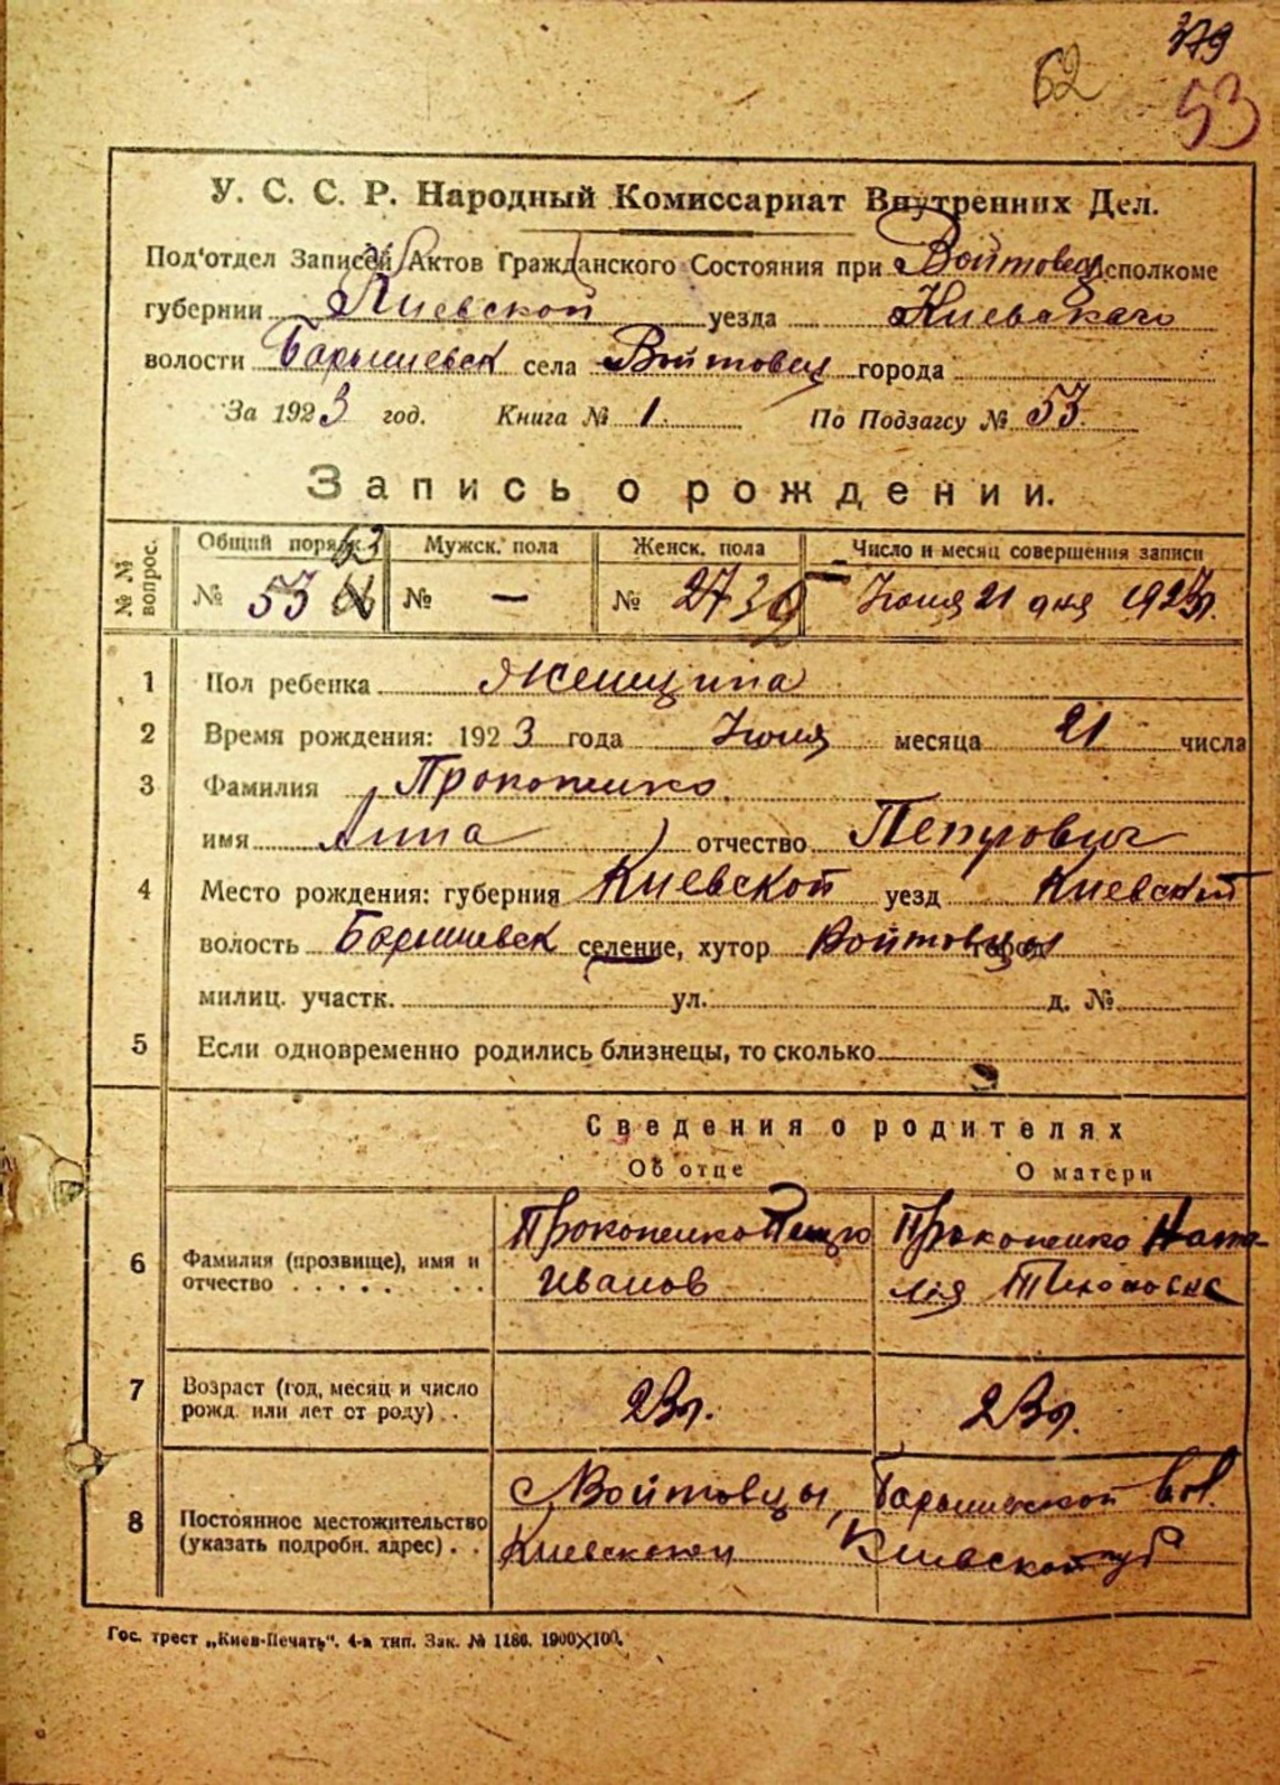 379
62
53
У. С. С. Р. Народный Комиссариат Внутренних Дел.
Под'отдел Записей Актов Гражданского Состояния при Войтовец Исполкоме
губернии Киевской уезда Киевскаго
волости Барышевск села Войтовец города
За 1923 год. Книга № 1. По Подзагсу № 53.
Запись о рождении.
№ № вопрос.
Общий поряд. Мужск. пола Женск. пола Число и месяц совершения записи
62
№ 53 № — № 27 30 Июня 21 дня 1923 г.
1 Пол ребенка Женщина
2 Время рождения: 1923 года Июня месяца 21 числа
3 Фамилия Прокопенко
имя Анна отчество Петрович
4 Место рождения: губерния Киевской уезд Киевский
волость Барышевск селение, хутор Войтовцы город
милиц. участк. ул. д. №
5 Если одновременно родились близнецы, то сколько
Сведения о родителях
Об отце О матери
6 Фамилия (прозвище), имя и отчество Прокопенко Петро Иванов Прокопенко Ната-лия
7 Возраст (год, месяц и число рожд. или лет от роду) 23 л. 23 л.
8 Постоянное местожительство (указать подробн. адрес) с Войтовцы, Барышевской вол.
Киевской губ
Гос. трест „Киев-Печать". 4-я тип. Зак. № 1186. 1900×100.